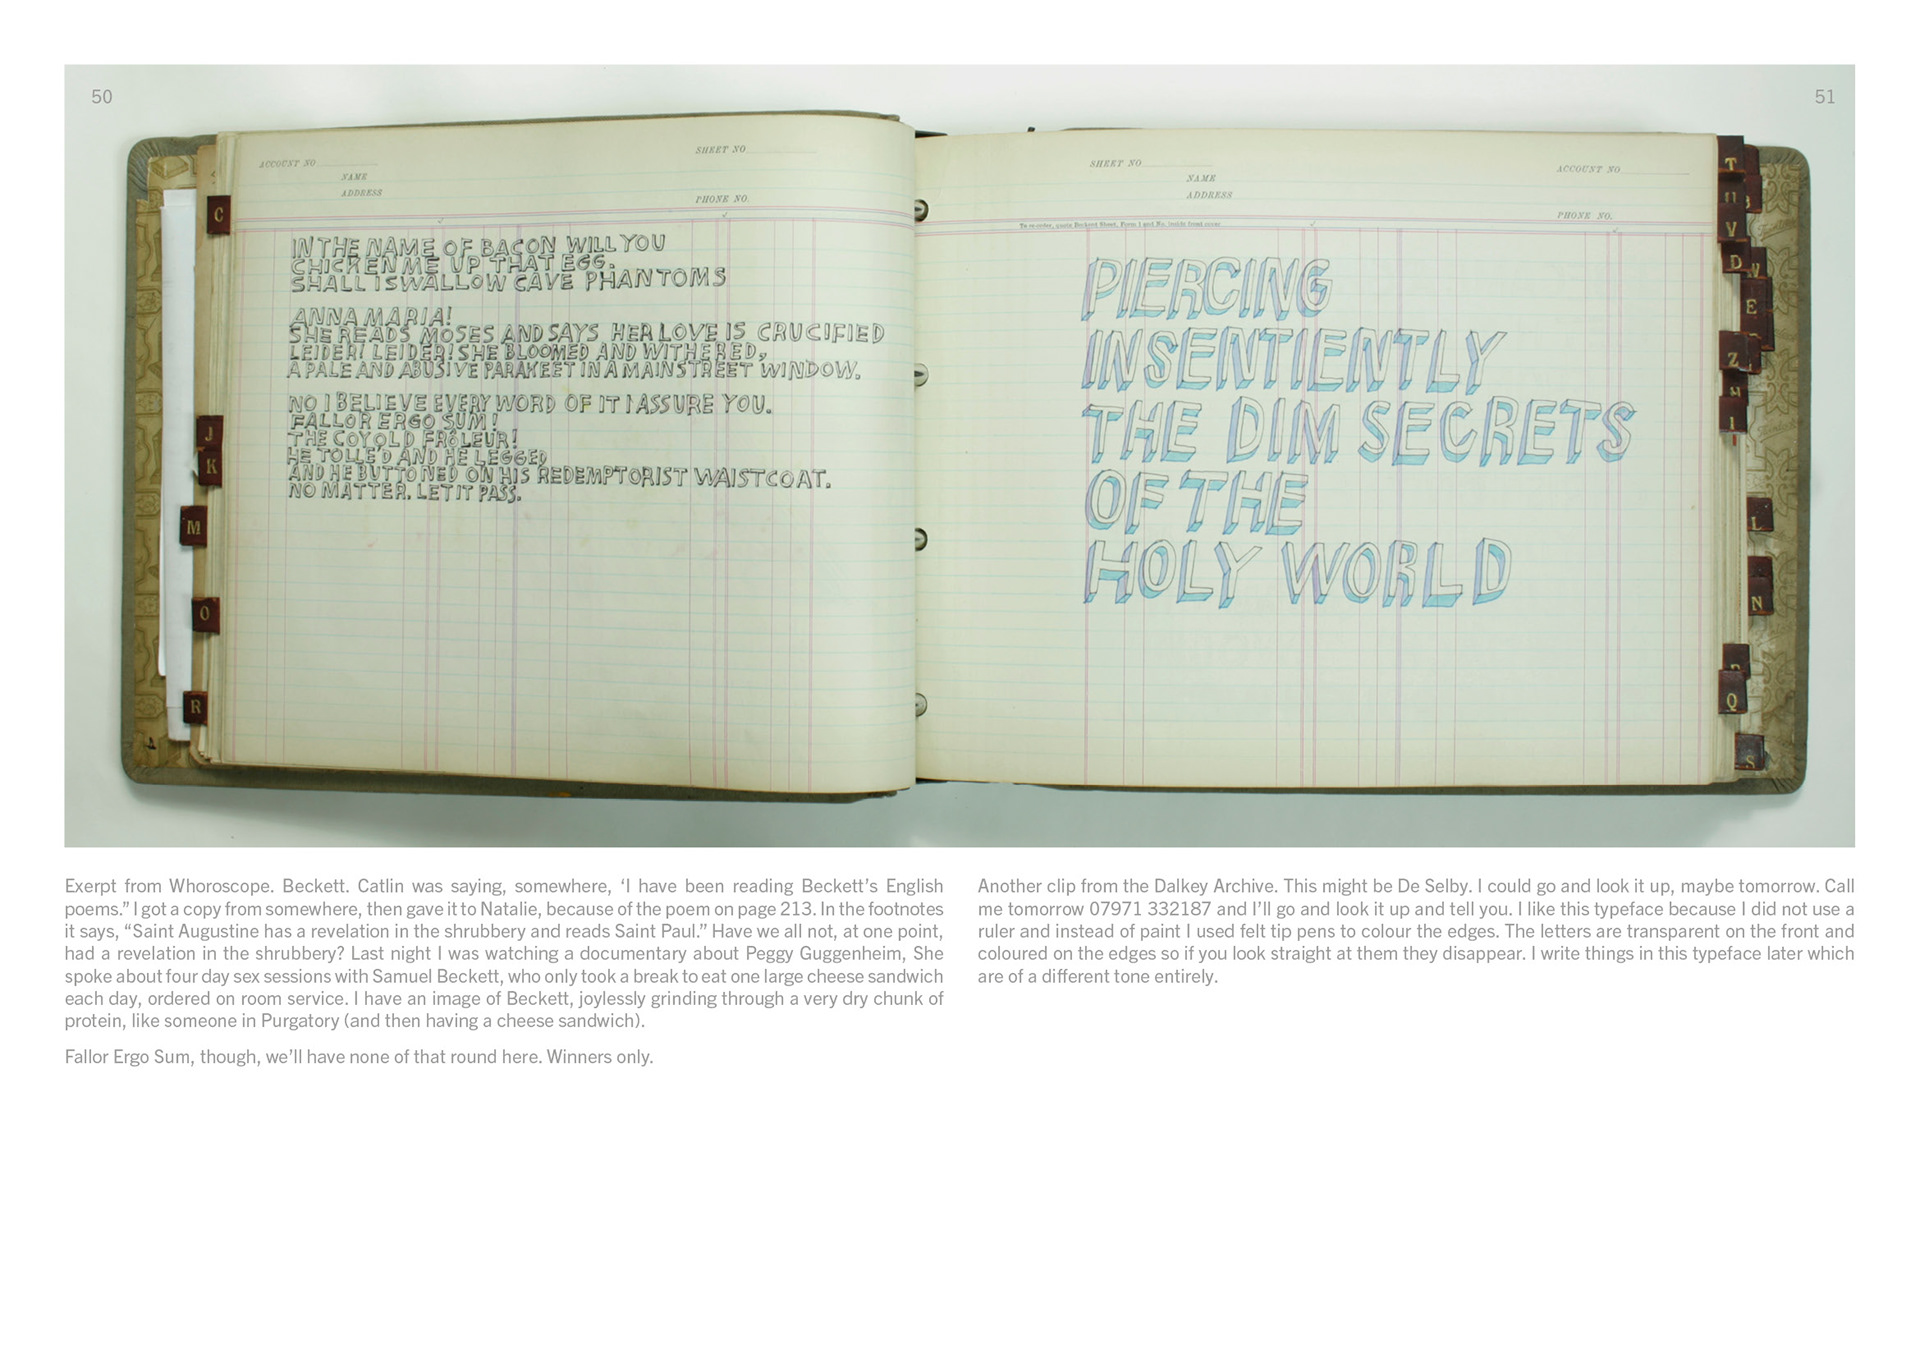 50
51
ACCOUNT NO
SHEET NO
NAME
ADDRESS
PHONE NO.
IN THE NAME OF BACON WILL YOU
CHICKEN ME UP THAT EGG.
SHALL I SWALLOW CAVE PHANTOMS
ANNA MARIA!
SHE READS MOSES AND SAYS HER LOVE IS CRUCIFIED
LEIDER! LEIDER! SHE BLOOMED AND WITHERED,
A PALE AND ABUSIVE PARAKEET IN A MAINSTREET WINDOW.
NO I BELIEVE EVERY WORD OF IT I ASSURE YOU.
FALLOR ERGO SUM!
THE COY OLD FRÔLEUR!
HE TOLLE'D AND HE LEGGED
AND HE BUTTONED ON HIS REDEMPTORIST WAISTCOAT.
NO MATTER. LET IT PASS.
C
J
K
M
O
R
SHEET NO
ACCOUNT NO
NAME
ADDRESS
PHONE NO.
To re-order, quote Sheet, Form 1 and No. inside front cover
PIERCING
INSENTIENTLY
THE DIM SECRETS
OF THE
HOLY WORLD
T
U
B
V
D
W
E
Z
H
I
L
N
P
Q
S
Exerpt from Whoroscope. Beckett. Catlin was saying, somewhere, ‘I have been reading Beckett’s English
poems.” I got a copy from somewhere, then gave it to Natalie, because of the poem on page 213. In the footnotes
it says, “Saint Augustine has a revelation in the shrubbery and reads Saint Paul.” Have we all not, at one point,
had a revelation in the shrubbery? Last night I was watching a documentary about Peggy Guggenheim, She
spoke about four day sex sessions with Samuel Beckett, who only took a break to eat one large cheese sandwich
each day, ordered on room service. I have an image of Beckett, joylessly grinding through a very dry chunk of
protein, like someone in Purgatory (and then having a cheese sandwich).
Fallor Ergo Sum, though, we’ll have none of that round here. Winners only.
Another clip from the Dalkey Archive. This might be De Selby. I could go and look it up, maybe tomorrow. Call
me tomorrow 07971 332187 and I’ll go and look it up and tell you. I like this typeface because I did not use a
ruler and instead of paint I used felt tip pens to colour the edges. The letters are transparent on the front and
coloured on the edges so if you look straight at them they disappear. I write things in this typeface later which
are of a different tone entirely.